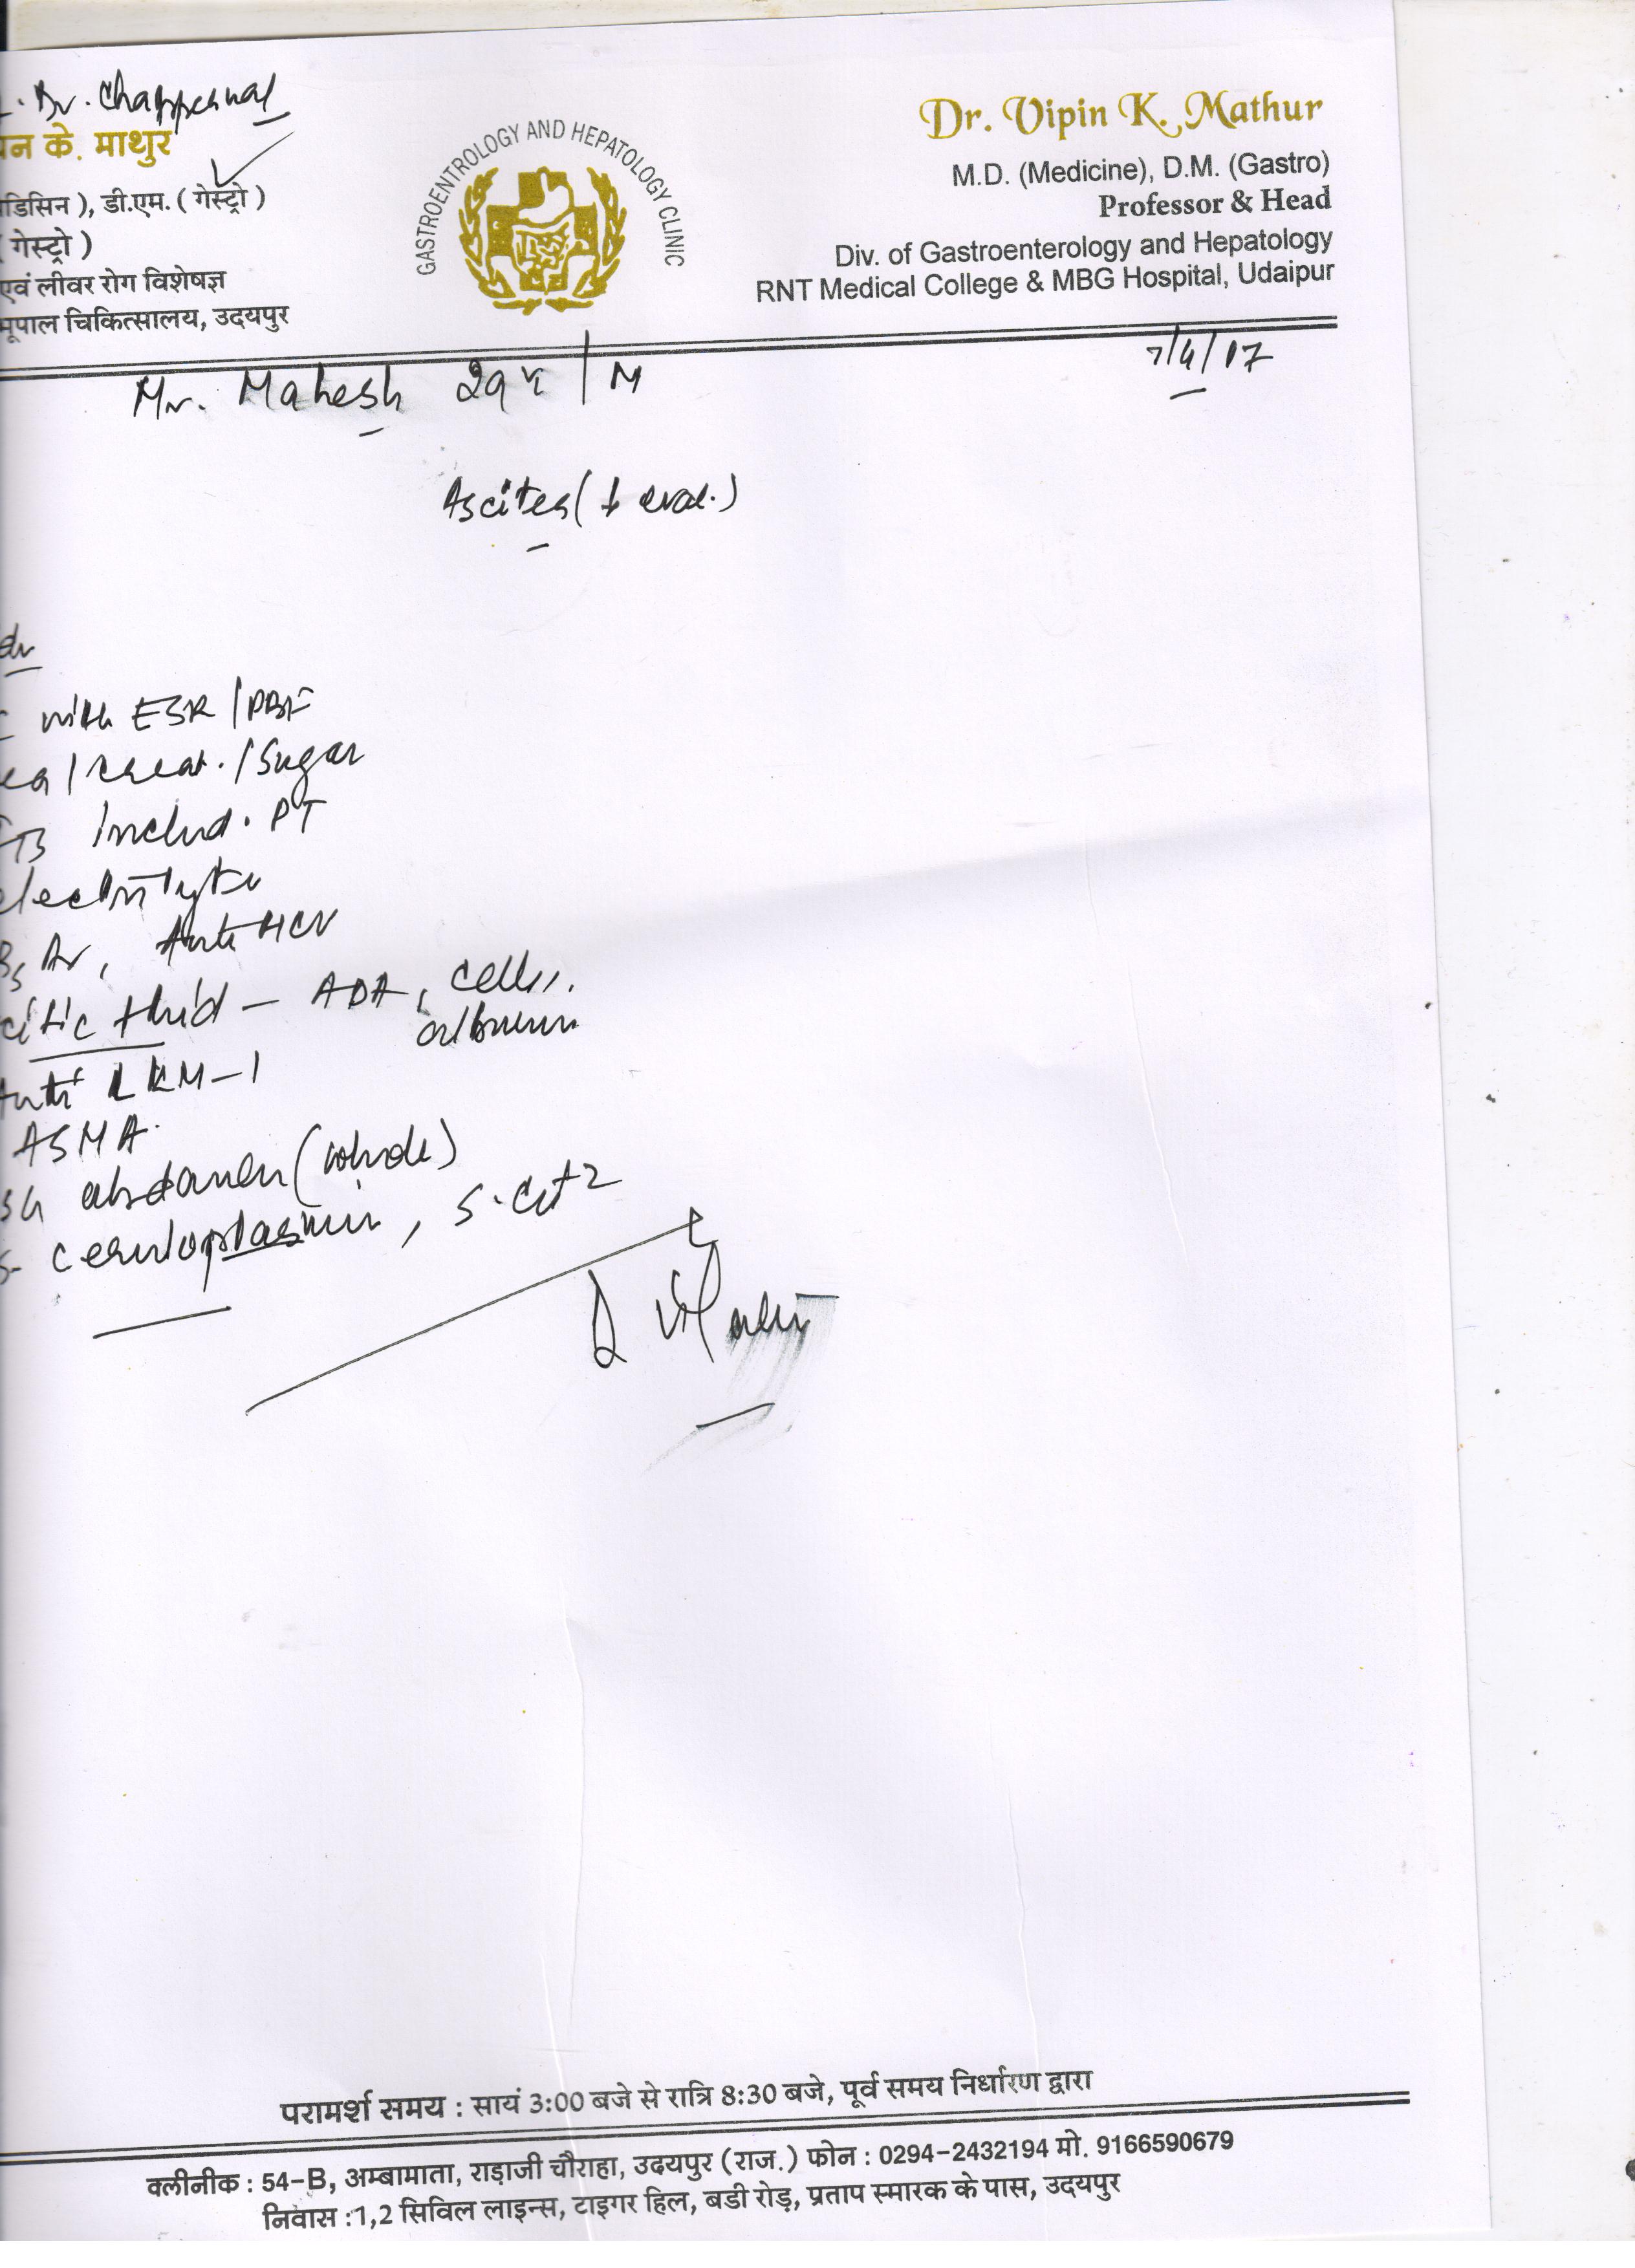 Dr. Chapperwal
पन के. माथुर
डिसिन ), डी.एम. ( गेस्ट्रो )
( गेस्ट्रो )
एवं लीवर रोग विशेषज्ञ
भूपाल चिकित्सालय, उदयपुर
GASTROENTROLOGY AND HEPATOLOGY CLINIC
Dr. Vipin K. Mathur
M.D. (Medicine), D.M. (Gastro)
Professor & Head
Div. of Gastroenterology and Hepatology
RNT Medical College & MBG Hospital, Udaipur
7/4/17
Mr. Mahesh 29 Y / M
Ascites ( eval.)
dr
with ESR / PBF
ea / creat. / Sugar
Includ. PT
electrolyte
Bs Ar, Anti HCV
citic fluid - ADA, cells,
albumin
Anti LKM-1
ASMA
abdomen (whole)
S. ceruloplasmin, S. Cu+2
परामर्श समय : सायं 3:00 बजे से रात्रि 8:30 बजे, पूर्व समय निर्धारण द्वारा
क्लीनीक : 54-B, अम्बामाता, राड़ाजी चौराहा, उदयपुर (राज.) फोन : 0294-2432194 मो. 9166590679
निवास :1,2 सिविल लाइन्स, टाइगर हिल, बडी रोड़, प्रताप स्मारक के पास, उदयपुर